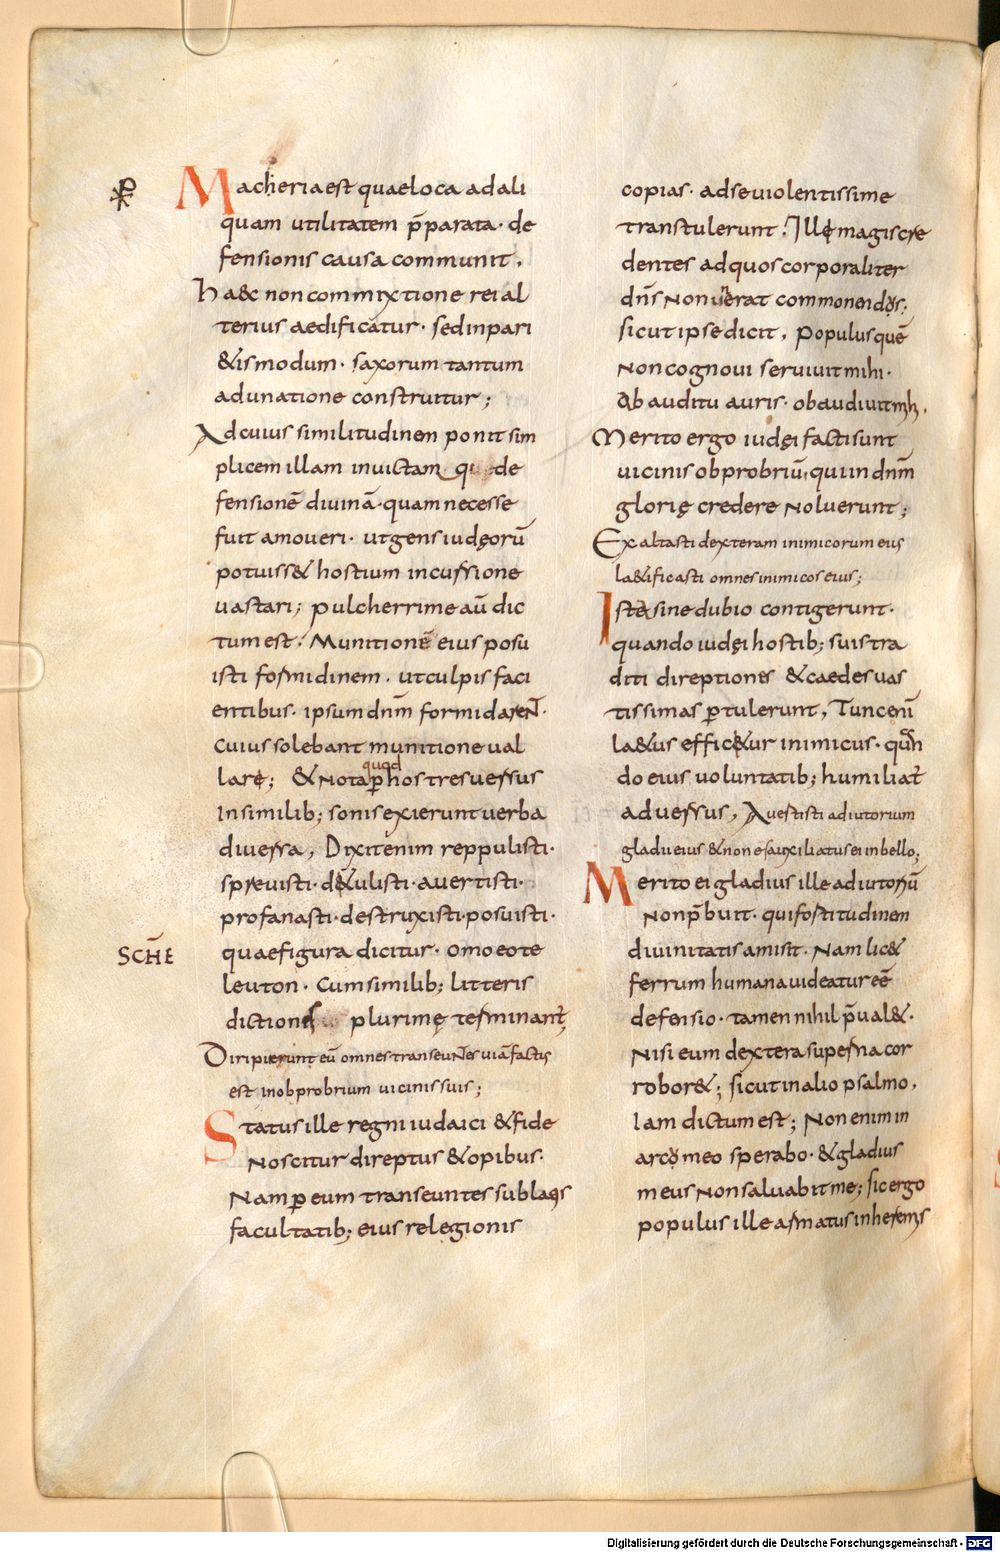 Macheria est quae loca ad ali
quam utilitatem p̄parata · de
fensionis causa communit .
haec non commixtione rei al
terius aedificatur · sed in pari
&is modum · saxorum tantum
adunatione construitur ;
Ad cuius similitudinem ponit sim
plicem illam inuictam que de
fensionē diuinā · quam necesse
fuit amoueri · ut gens iudęorū
potuiss& hostium incussione
uastari ; pulcherrime aū dic
tum est . Munitionē eius posu
isti formidinem . ut culpis faci
entibus · ipsum dn̄m formidarent ·
cuius solebant munitione ual
larę ; & nota quod ꝑ hos tres uersus
In similib; sonis exierunt uerba
diuersa , Dixit enim reppulisti ·
spreuisti · d&ulisti · auertisti ·
profanasti · destruxisti · posuisti ·
SCHĒ
quae figura dicitur · omoeote
leuton · Cum similib; litteris
dictiones plurimę terminant ;
Diripierunt eū omnes transeuntes uiā factus
est in obprobrium uicinis suis ;
Status ille regni iudaici & fide
Noscitur direptus & opibus ·
Nam ꝑ eum transeuntes sublatis
facultatib; eius relegionis
copias · ad se uiolentissime
transtulerunt . Illę magis cre
dentes ad quos corporaliter
dn̄s non uenerat commonendos ;
sicut ipse dicit , Populus quē
Non cognoui seruiuit mihi ·
Ob auditu auris · obaudiuit mihi .
Merito ergo iudęi facti sunt
uicinis obprobriū , qui in dn̄m
glorię credere noluerunt ;
Exaltasti dexteram inimicorum eius
la&ificasti omnes inimicos eius ;
Ista sine dubio contigerunt ·
quando iudęi hostib; suis tra
diti direptiones & caedes uas
tissimas ꝑtulerunt , Tunc enī
la&us effic&ur inimicus · quan
do eius uoluntatib; humiliat
aduersus , Auertisti adiutorium
gladii eius & non es auxiliatus ei in bello ;
Merito ei gladius ille adiutoriū
Non p̄buit · qui fostitudinem
diuinitatis amisit · Nam lic&
ferrum humana uideatur eē
defensio · tamen nihil p̄ual& ·
Nisi eum dextera superna cor
robor& ; sicut in alio psalmo ,
Iam dictum est ; Non enim in
arco meo sperabo · & gladius
meus non saluabit me ; sic ergo
populus ille armatus inhermis
Digitalisierung gefördert durch die Deutsche Forschungsgemeinschaft - DFG